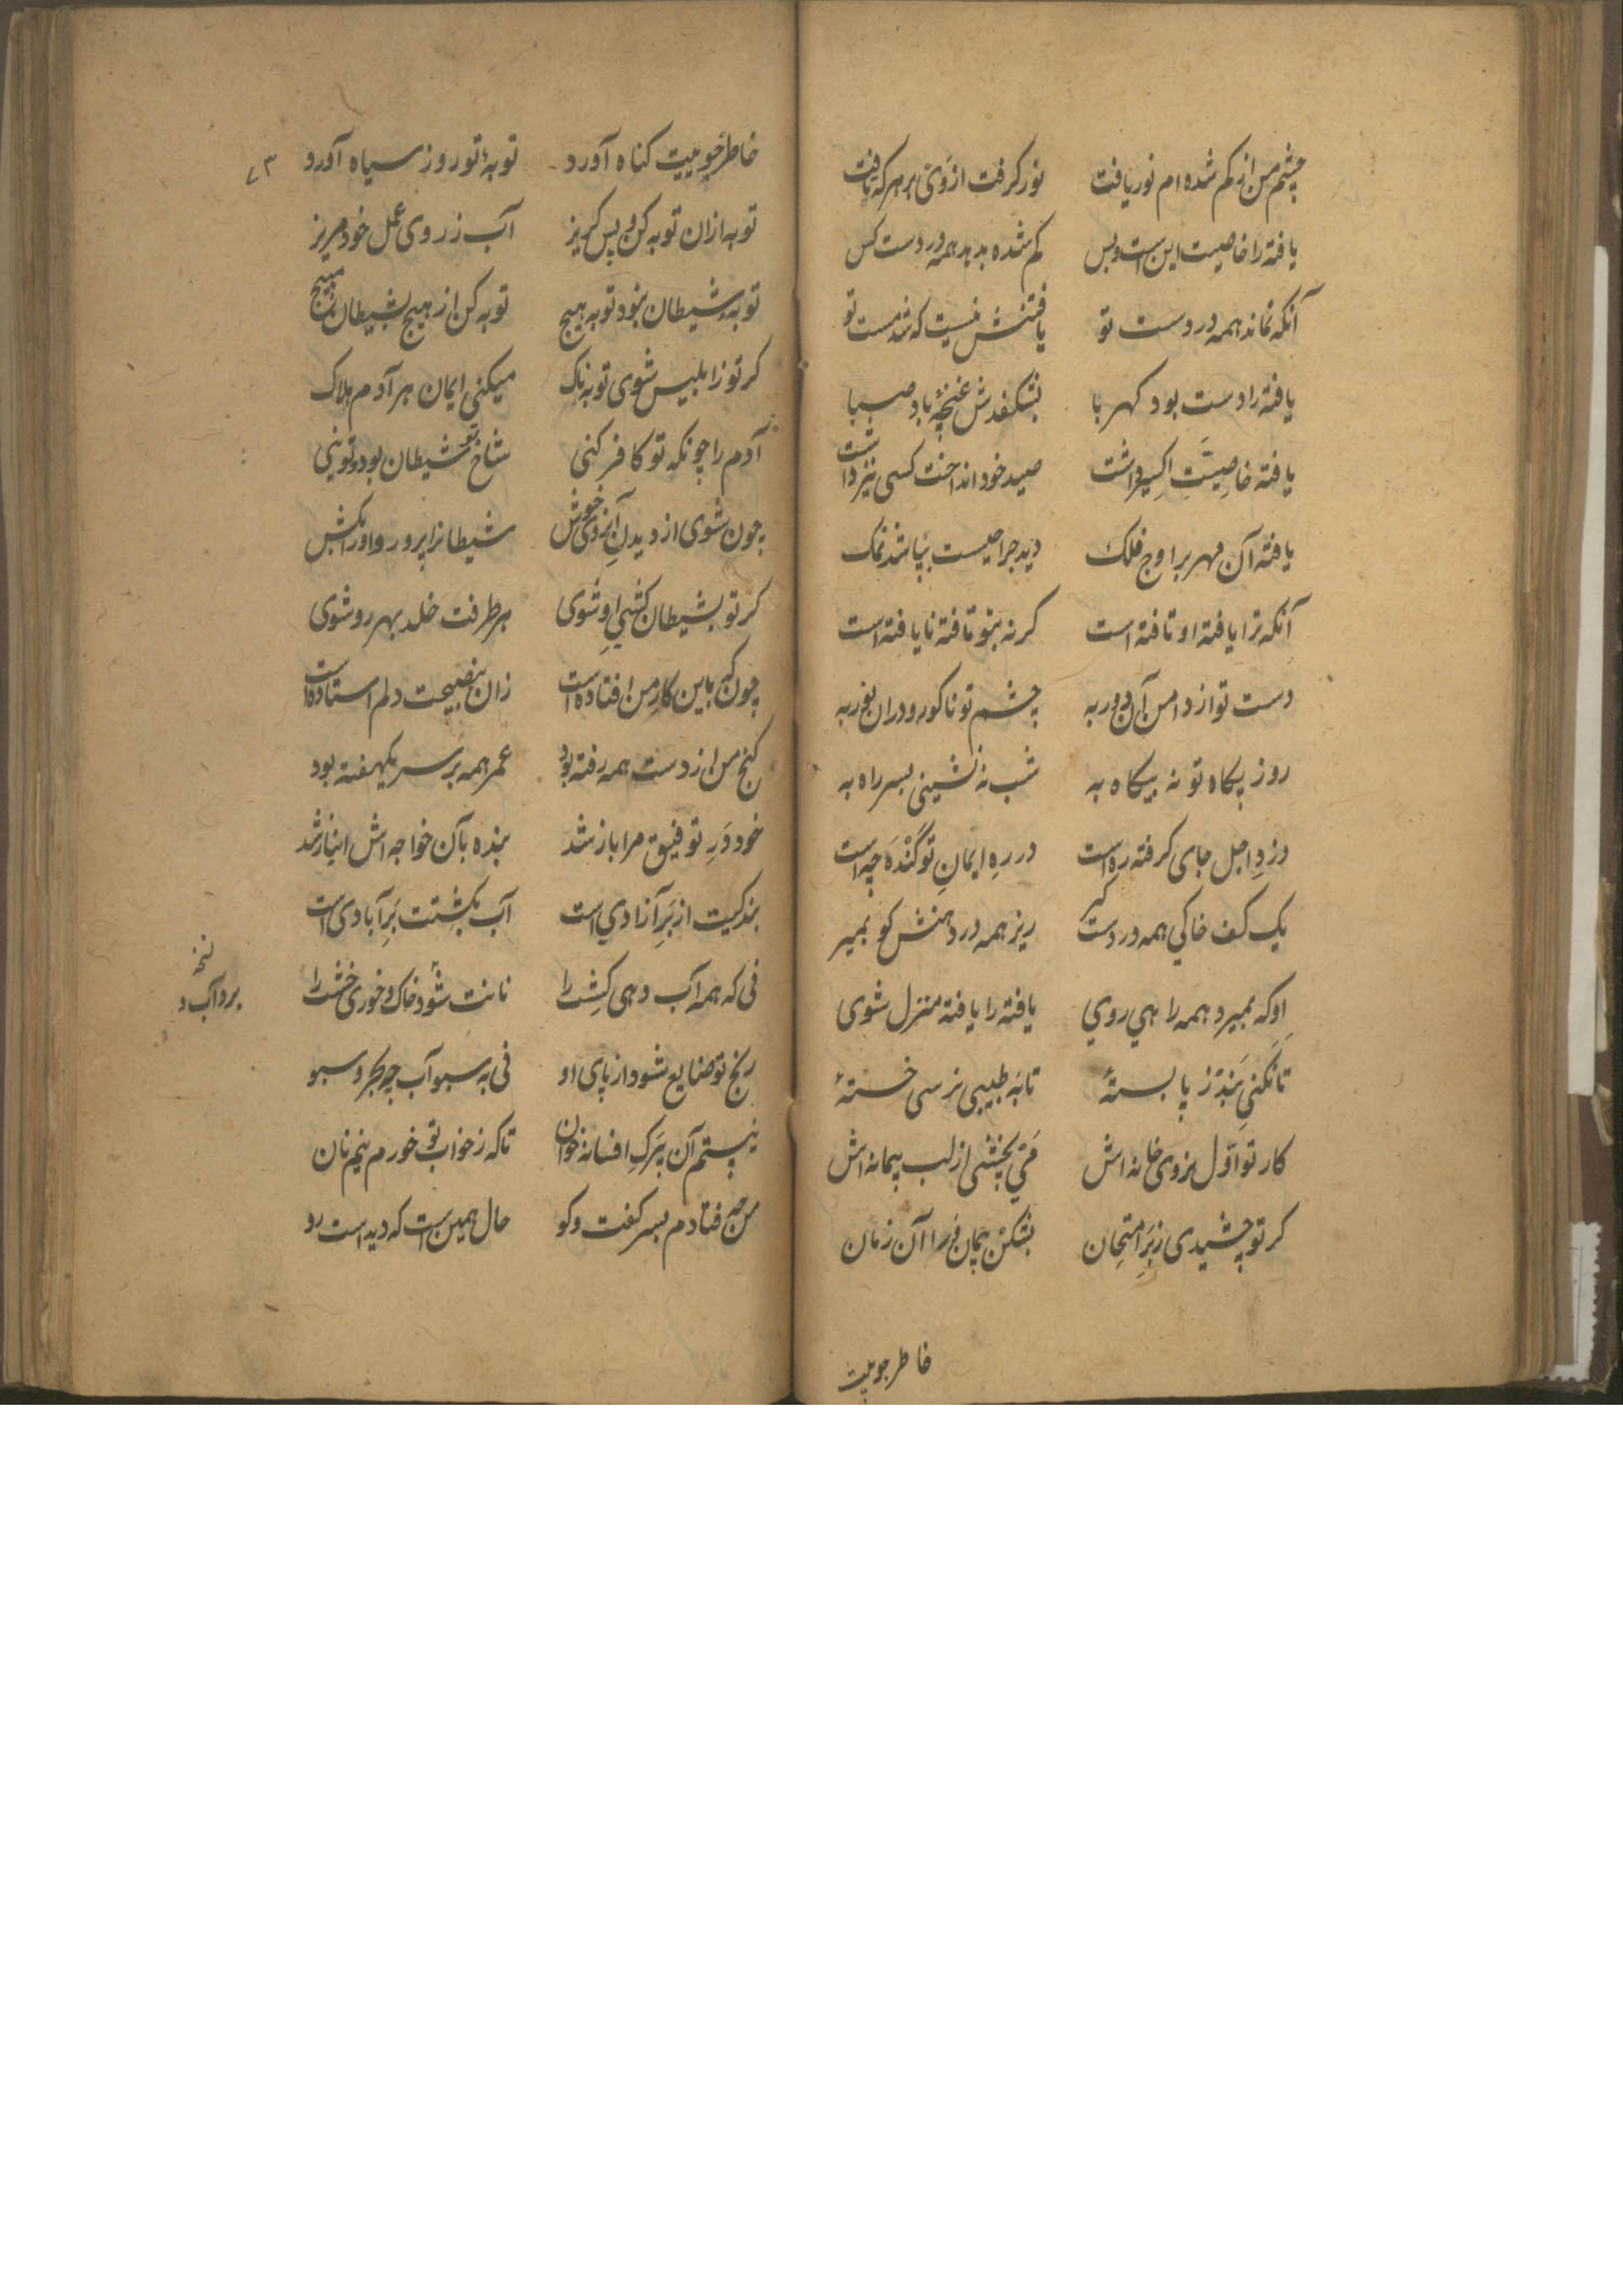 چشم من از کم شده ام نور یافت نور کرفت از وی بر هر که تافت
یافته را خاصیت این است و بس کم شده بدهد همه در دست کس
آنکه نماند همه در دست تو یافتنش نیست که شد مست تو
یافته را دست بود کهربا بشکفدش غنچهٔ باد صبا
یافته خاصیتِ اکسیر داشت صید خود انداخت کسی نیز داشت
یافته آن مهر بر اوج فلک دید جراحیست بپاشد نمک
آنکه ترا یافته او تافته است کر نه بتو تافته نایافته است
دست تو از دامن آن دور به چشم تو نا کور و دران نور به
روز پکاه تو نه بیکاه به شب نه نشینی بسر راه به
دزدِ اجل جای کرفته ره است در رهِ ایمانِ تو کنده چه است
یک کف خاکی همه در دست کیر ریز همه در دهنش کو بمیر
او که بمیرد همه را هی روی یافته را یافته منزل شوی
تا نکنی بند ز پا بستهٔ تا به طبیبی نرسی خستهٔ
کار تو اول بروی خانه اش می بچشی از لب پیمانه اش
کر تو چشیدی ز بر امتحان بشکن پیمان فرا آن زمان
خاطر جوییت
خاطر جوییت کناه آورد توبهٔ تو روز سیاه آورد ۷۳
توبه ازان توبه کن و پس کریز آب ز روی عمل خود مریز
توبهٔ شیطان نبود توبه هیچ توبه کن از هیچ بشیطان مپیچ
کر تو ز ابلیس شوی توبه ناک میکنی ایمان هر آدم هلاک
آدم را چونکه تو کافر کنی شاخ تو شیطان بود و تو بنی
چون شوی از دیدنِ آن روی خوش شیطانرا پرور و او را بکش
کر تو بشیطان کشیِ او شوی هر طرفت خلد بهر رو شوی
چون که باین کارِ من افتاده است زان بنصیحت دلم استاده است
کنج من از دست همه رفته بود عمر همه بر سر یکهفته بود
خود درِ توفیق مرا باز شد بنده بآن خواجه اش انباز شد
بندکیت از برِ آزادی است آب بکشتت برِ آبادی است
نی که همه آب دهی کِشت را نانت شود خاک و خوری خشت را
رنج تو ضایع شود از پای او نی به سبو آب چو بحر و سبو
نیستم آن برکِ افسانه خوان تاکه ز خواب تو خورم نیم نان
من چو فتادم بسر کفت و کو حال همین است که دید است رو
نسخه
برد آب و